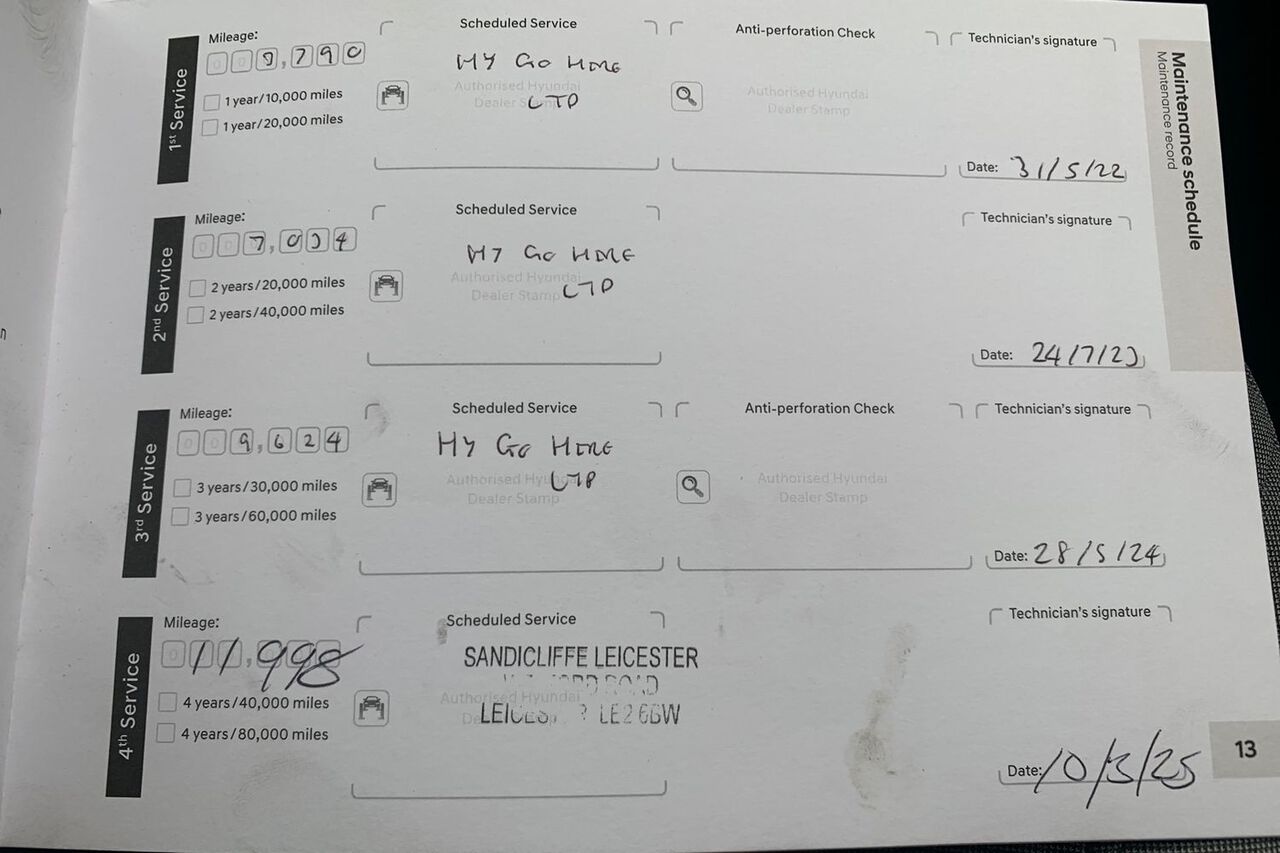 Maintenance schedule
Maintenance record
1st Service
Mileage:
1 year/10,000 miles
1 year/20,000 miles
Scheduled Service
MY GO HOME
Authorised Hyundai
Dealer Stamp
LTD
Anti-perforation Check
Authorised Hyundai
Dealer Stamp
Technician's signature
Date: 31/5/22
2nd Service
Mileage:
2 years/20,000 miles
2 years/40,000 miles
Scheduled Service
MY GO HOME
Authorised Hyundai
Dealer Stamp LTD
Technician's signature
Date: 24/7/23
3rd Service
Mileage:
009,624
3 years/30,000 miles
3 years/60,000 miles
Scheduled Service
MY GO HOME
Authorised Hyundai
Dealer Stamp
LTD
Anti-perforation Check
Authorised Hyundai
Dealer Stamp
Technician's signature
Date: 28/5/24
4th Service
Mileage:
011,998
4 years/40,000 miles
4 years/80,000 miles
Scheduled Service
SANDICLIFFE LEICESTER
ROAD
Authorised Hyundai
LE2 6BW
Technician's signature
Date:
13